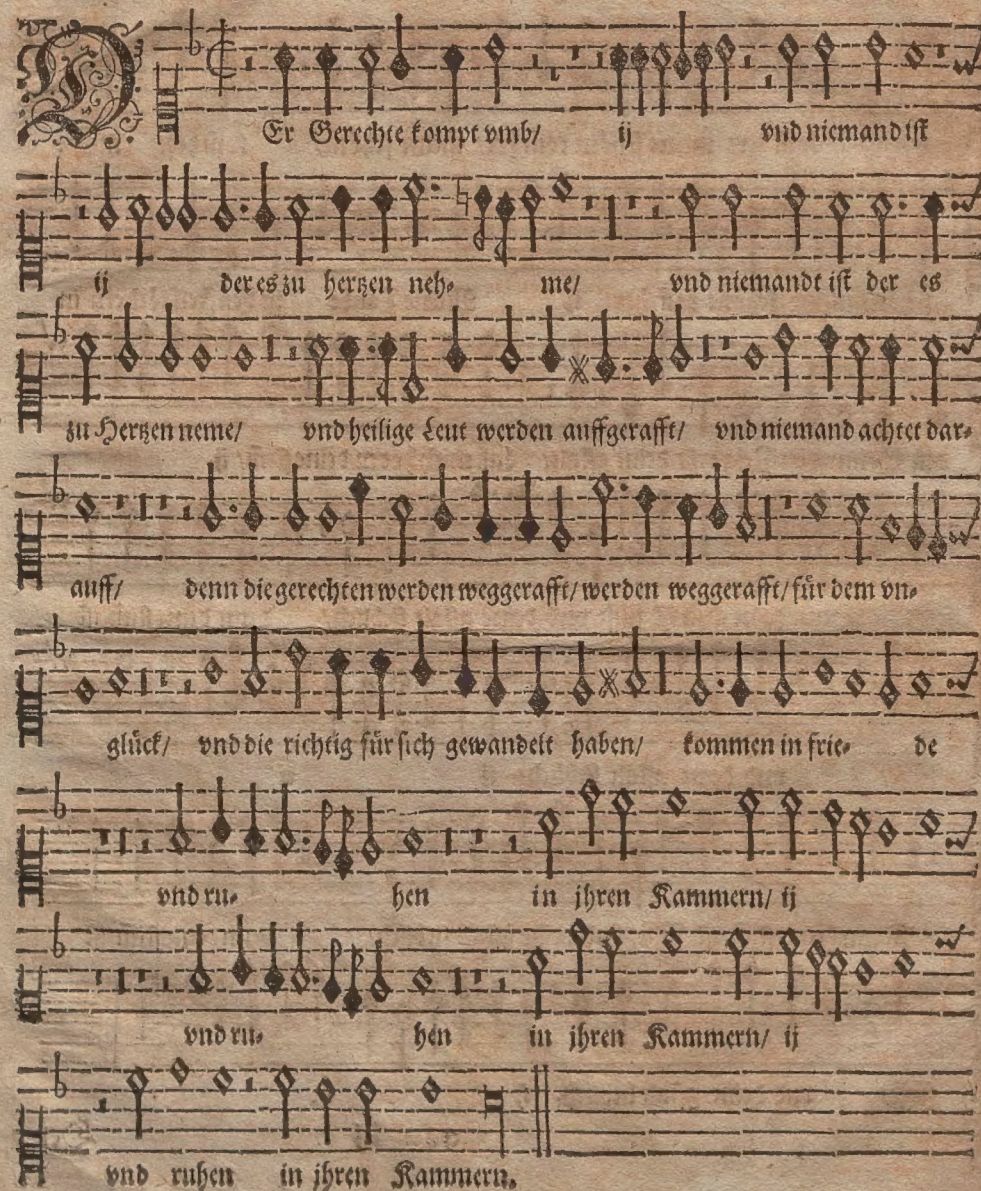 DEr Gerechte kompt vmb/ ij vnd niemand ist
ij der es zu hertzen neh- me/ vnd niemandt ist der es
zu Hertzen neme/ vnd heilige Leut werden auffgerafft/ vnd niemand achtet dar-
auff/ denn die gerechten werden weggerafft/ werden weggerafft/ für dem vn-
glück/ vnd die richtig für sich gewandelt haben/ kommen in frie- de
vnd ru- hen in jhren Kammern/ ij
vnd ru- hen in jhren Kammern/ ij
vnd ruhen in jhren Kammern.